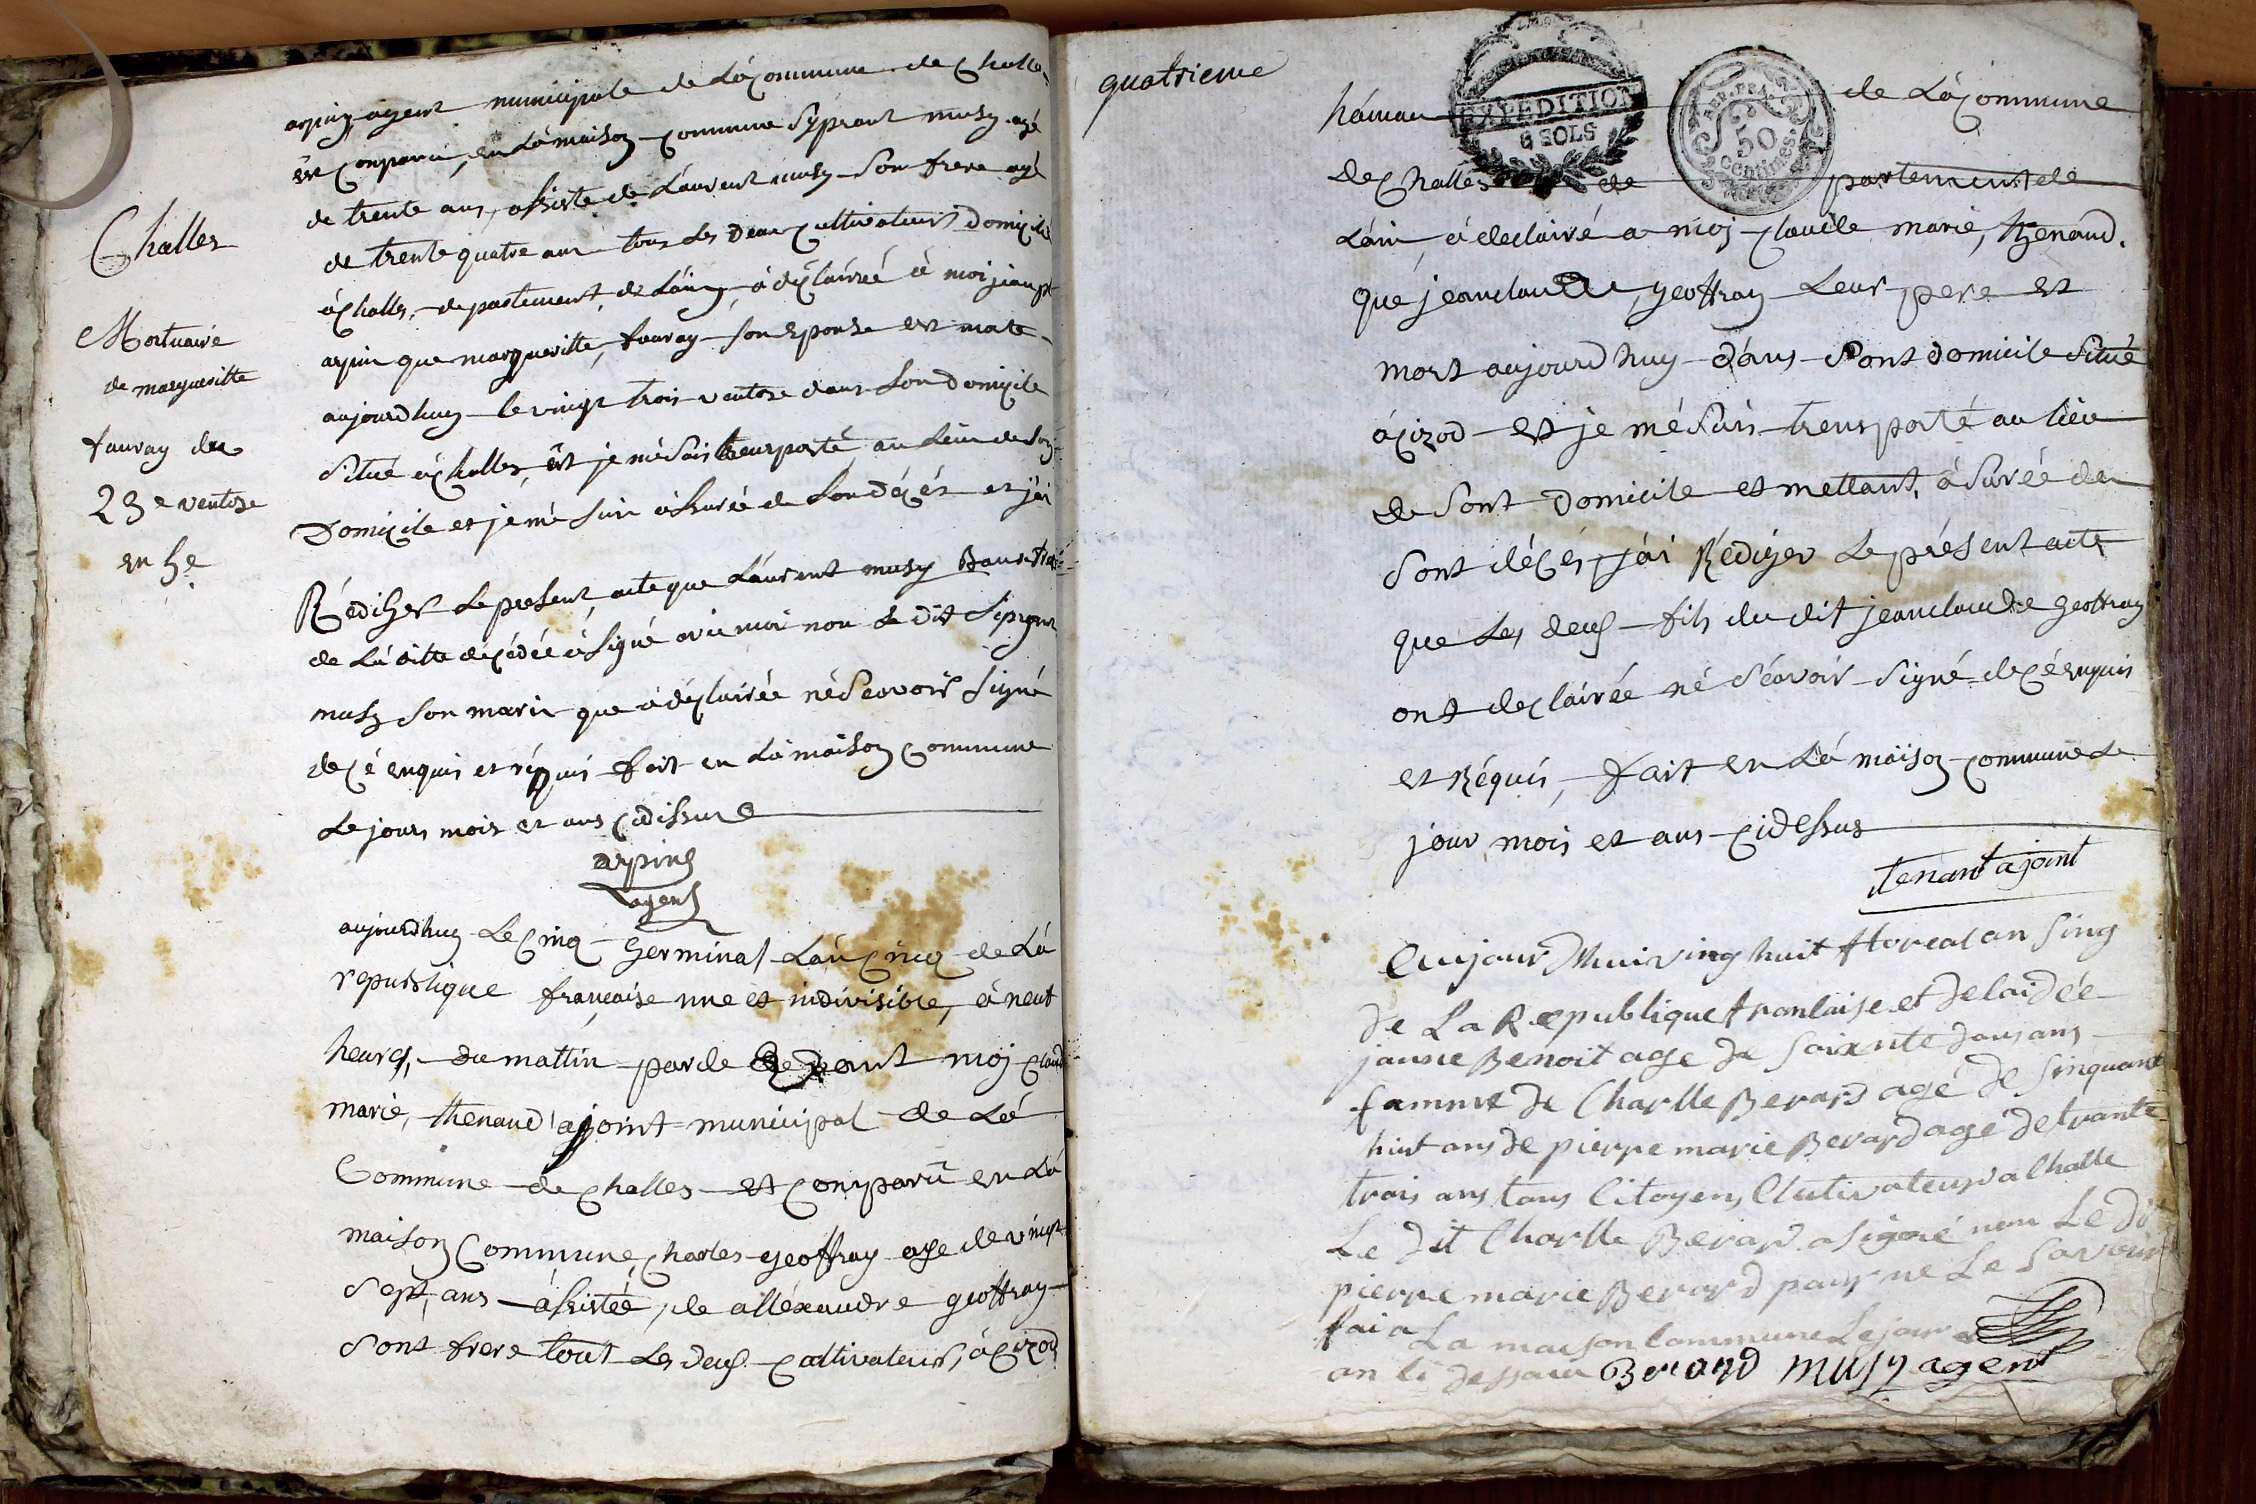 arpin agent municipale de Lácommune de Challe
est Comparu, en Lámaison Commune Sÿprant musy agé
de trente ans, assiste de Laurent musy Son frere agé
de trente quatre ans tous Les Deux Cultivateurs Domicilié
áChalles, departement de Láin, á déClairée á moi jeanpt
arpin que marguerítte, fauray Son Sponse est mate
aujourdhuy le vingt trois ventose dans Son Domicile
Situé áChalles, êst je mé Suis transporté au Lieu de Son
Domicile et jé mé Suis ássurée de Son déCés et jái
Rédiger Le present, acte que Láurent musy
de Lá ditte décédée á Signé avec moi non Le Dit Siprant
musy Son marit que á déClairée né Scavoir Signé
de Cé enquis et réquis fait en Lá maison Commune
Le jours mois et ans Cidissus
arpin
agent
Challes
Mortuaire
de marguesitte
fauray du
23e ventose
en 5e
aujourdhuy Le Cinq Germinal Lán Cincq de Lá
republique française une et indivisible, á neuf
heures, du mattin par de devant moj Claud
marie, thenaud ajoint municipal de Lá
Commune de Challes est Comparû en Lá
maison Commune, Charles geoffray age de vingt
Sept, ans ássistée, de alléxandre geoffray
Sont frere tout Les deux Cultivateurs, áCizod
quatrieme
háman de LáCommune
EXPEDITION
6 SOLS
REP. FRA.
50
Centimes.
de Challes de partement de
Láin, á declairé a moj Claude marie, thenaud.
qué jeanclaude, geoffray Leur pere est
mort aujourdhuy dáns Sont domicile Situé
áCizod est je mé Suis transporté au lieu
de Sont Domicile et mettant, ásurée de
Sont déCés, jái Rédiger Le présent acte
que Les deux fils du dit jeanclaude geoffray
ont declairée né Scavoir Signé de Cé enquis
et Réquis, fait en Lá máison Commune Le
jour, mois et ans Cidessus
tenant ajoint
Aujourdhui ving huit floreal an Sing
de La Republique franlaise et delaidée
janne Benoit age de Soixnte dous ans
famme de Charlle Berard agé de Sinquante
huit ans de pierre marie Berard agé de trante
trois ans tous Citoyens Clutivateurs a Challe
Le dit Charlle Berard a signé non Le di
pierre marie Berard pour ne Le Savoir
fai a La maison Commune Le jour
an li dessau Berard musy agent